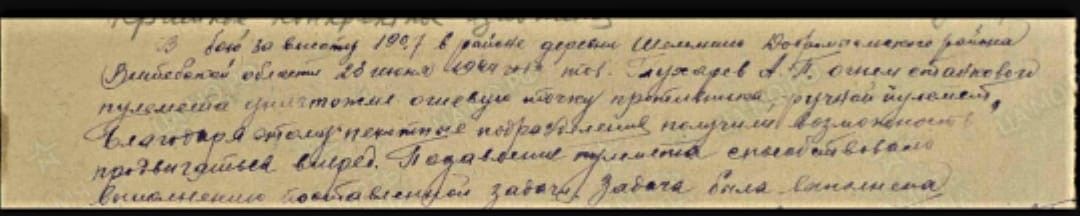 В бою за высоту 190,7 в районе деревни Шелмино Добромыслского района
Витебской области 28 июня 1944 года тов. Глухарев А. П. огнем станкового
пулемета уничтожил огневую точку противника, ручной пулемет,
благодаря этому пехотные подразделения получили возможность
продвигаться вперед. Подавление пулемета способствовало
выполнению поставленной задачи. Задача была выполнена